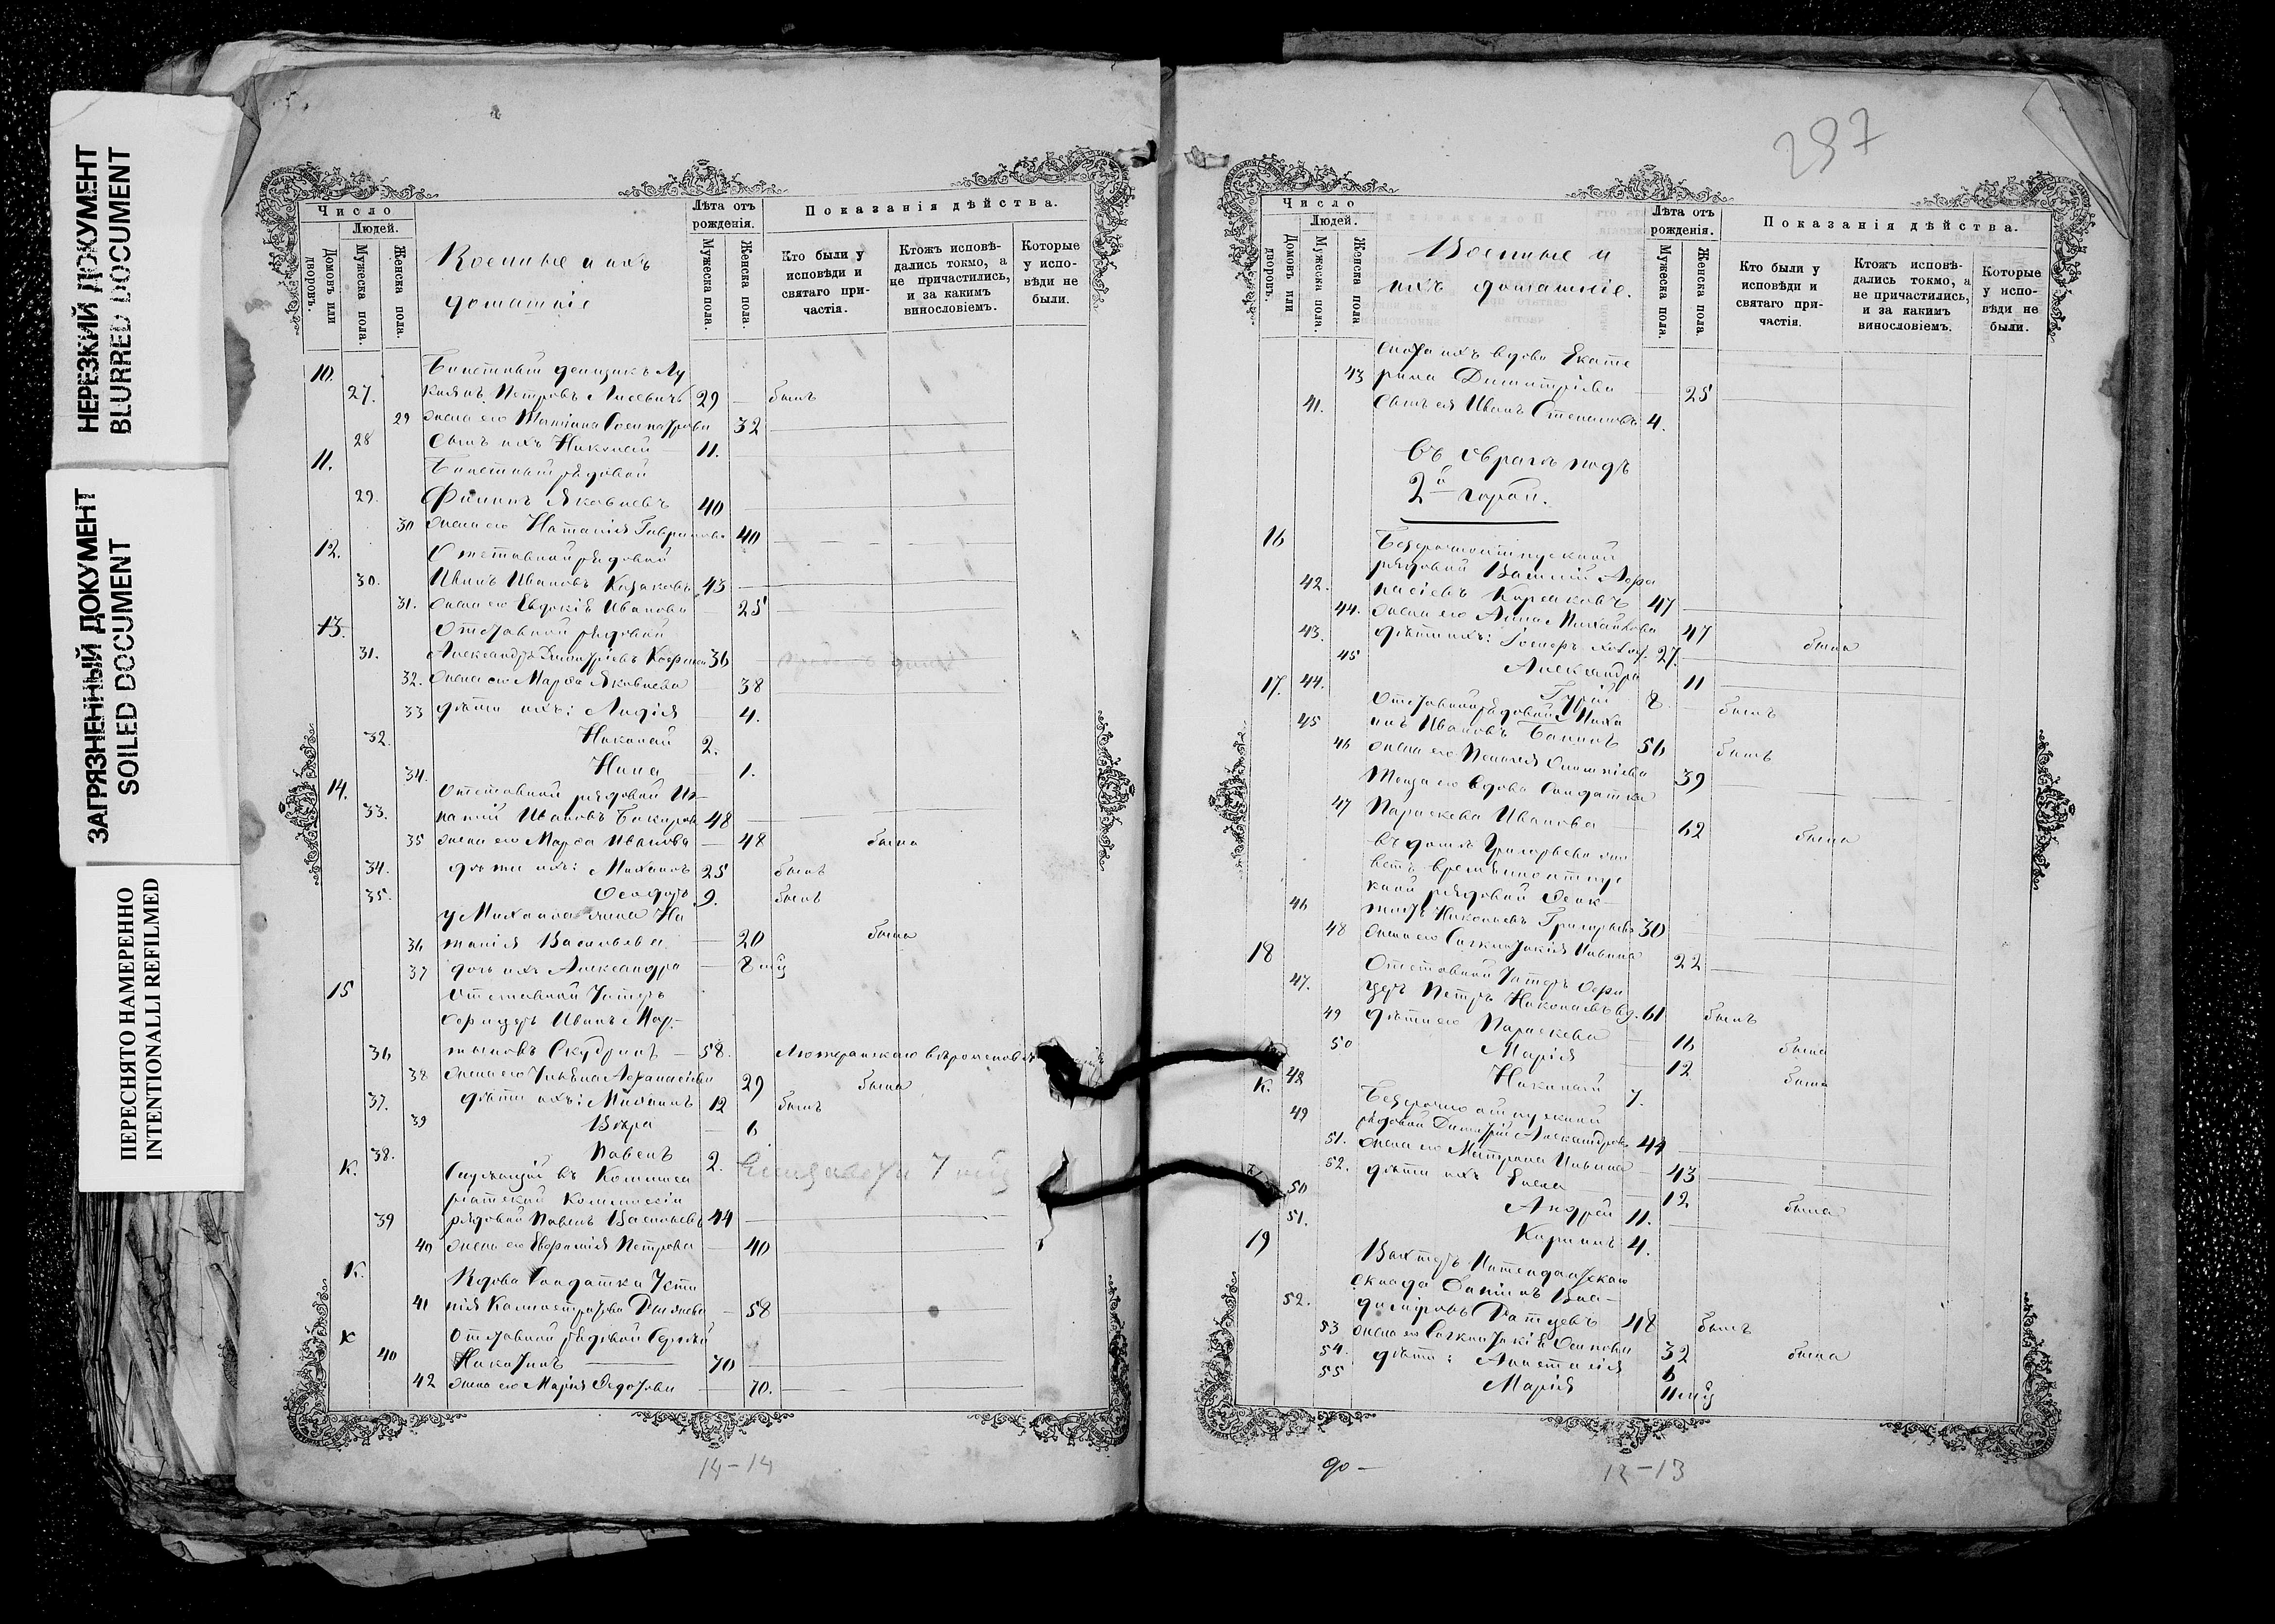 НЕРЕЗКИЙ ДОКУМЕНТ
BLURRED DOCUMENT
ЗАГРЯЗНЕННЫЙ ДОКУМЕНТ
SOILED DOCUMENT
ПЕРЕСНЯТО НАМЕРЕННО
INTENTIONALLI REFILMED
Число
Людей.
Домовъ или дворовъ.
Мужеска пола.
Женска пола.
Военные и ихъ
домашніе
Лѣта отъ рожденія.
Мужеска пола.
Женска пола.
Показанія дѣйства.
Кто были у исповѣди и святаго причастія.
Ктожъ исповѣдались токмо, а не причастились, и за какимъ винословіемъ.
Которые у исповѣди не были.
10. Билетный денщикъ Лу
27. кіянъ Петровъ 29 — былъ
29 жена его Татіана 32
28 сынъ ихъ Николай 11.
11. Билетный рядовой
29. Филипъ Яковлевъ 40
30 жена его Наталія Гаврилова 40
12. Отставной рядовой
30. Иванъ Ивановъ Казаковъ 43
31. жена его Евдокія Иванова 25
13. Отставной рядовой
31. Александръ Димитріевъ 36
32. жена его Марѳа Яковлева — 38
33 дѣти ихъ: Лидія — 4.
32. Николай 2.
34. Нина — 1.
14. Отставной рядовой Иг
33. натій Ивановъ 48
35 жена его Марѳа Иванова — 48 была
34. дѣти ихъ: Михаилъ 25 былъ
35. Ѳеодоръ 9. былъ
у Михаила жена На
36 талія Васильева — 20 была
37 дочь ихъ Александра — 8 мѣц
15 Отставной Унтеръ
Офицеръ Иванъ Мар-
36 тыновъ — 58. Лютеранскаго
38 жена его Ульяна Аѳанасіева 29 была
37. дѣти ихъ: Михаилъ 12 былъ
39 Вѣра — 6
38. Павелъ 2. Елизавета 7 мѣц
К. Служащій въ Коммиса
ріатской Коммисіи
39 рядовой Павелъ Васильевъ 44
40 жена его Евфимія Петрова 40
К. Вдова Солдатка Усти
41 нія Калистратова — 58
К Отставной рядовой Сергѣй
40 Никитинъ 70
42 жена его Марія Ѳедотова — 70.
14-14
297
Число
Людей.
Домовъ или дворовъ.
Мужеска пола.
Женска пола
Военные и
ихъ домашніе.
Лѣта отъ рожденія.
Мужеска пола.
Женска пола.
Показанія дѣйства.
Кто были у исповѣди и святаго причастія.
Ктожъ исповѣдались токмо, а не причастились, и за какимъ винословіемъ.
Которые у исповѣди не были.
сноха ихъ вдова Екате
43 рина Димитріева 25
41. сынъ ея Иванъ Степановъ 4.
Въ оврагѣ подъ
2й горой.
16 Безсрочноотпускной
рядовой Василій Аѳа
42. насіевъ Корсаковъ 47
44. жена его Анна Михайлова 47
43. дѣти ихъ: 27. была
45 Александра 11
44. Гурій 8. былъ
17. Отставной рядовой Миха
45 илъ Ивановъ 56 былъ
46 жена его Пелагея 39
Теща его вдова Солдатка
47 Параскева Иванова 62 была
въ домѣ Григорьева жи
ветъ временноотпус
кной рядовой Ѳеок-
46 тистъ Николаевъ Григорьевъ 30
48 жена его 22
18 Отставной Унтеръ Офи
47. церъ Петръ Николаевъ вд. 61 былъ
49 дѣти его Параскева 16 была
50 Марія 12 была
48 Николай 7.
К. Безсрочно отпускной
49 рядовой Димитрій Александровъ 44
51. жена его Матрона 43
52. дѣти ихъ Елена 12 была
50 Андрей 11.
51. Кириллъ 4.
19 Вахтеръ Интендантскаго
Склада Даніилъ Вла-
52. диміровъ 48 былъ
53 жена его 32 была
54. дѣти: Анастасія 6
55 Марія 11 мѣц
90 —
12-13